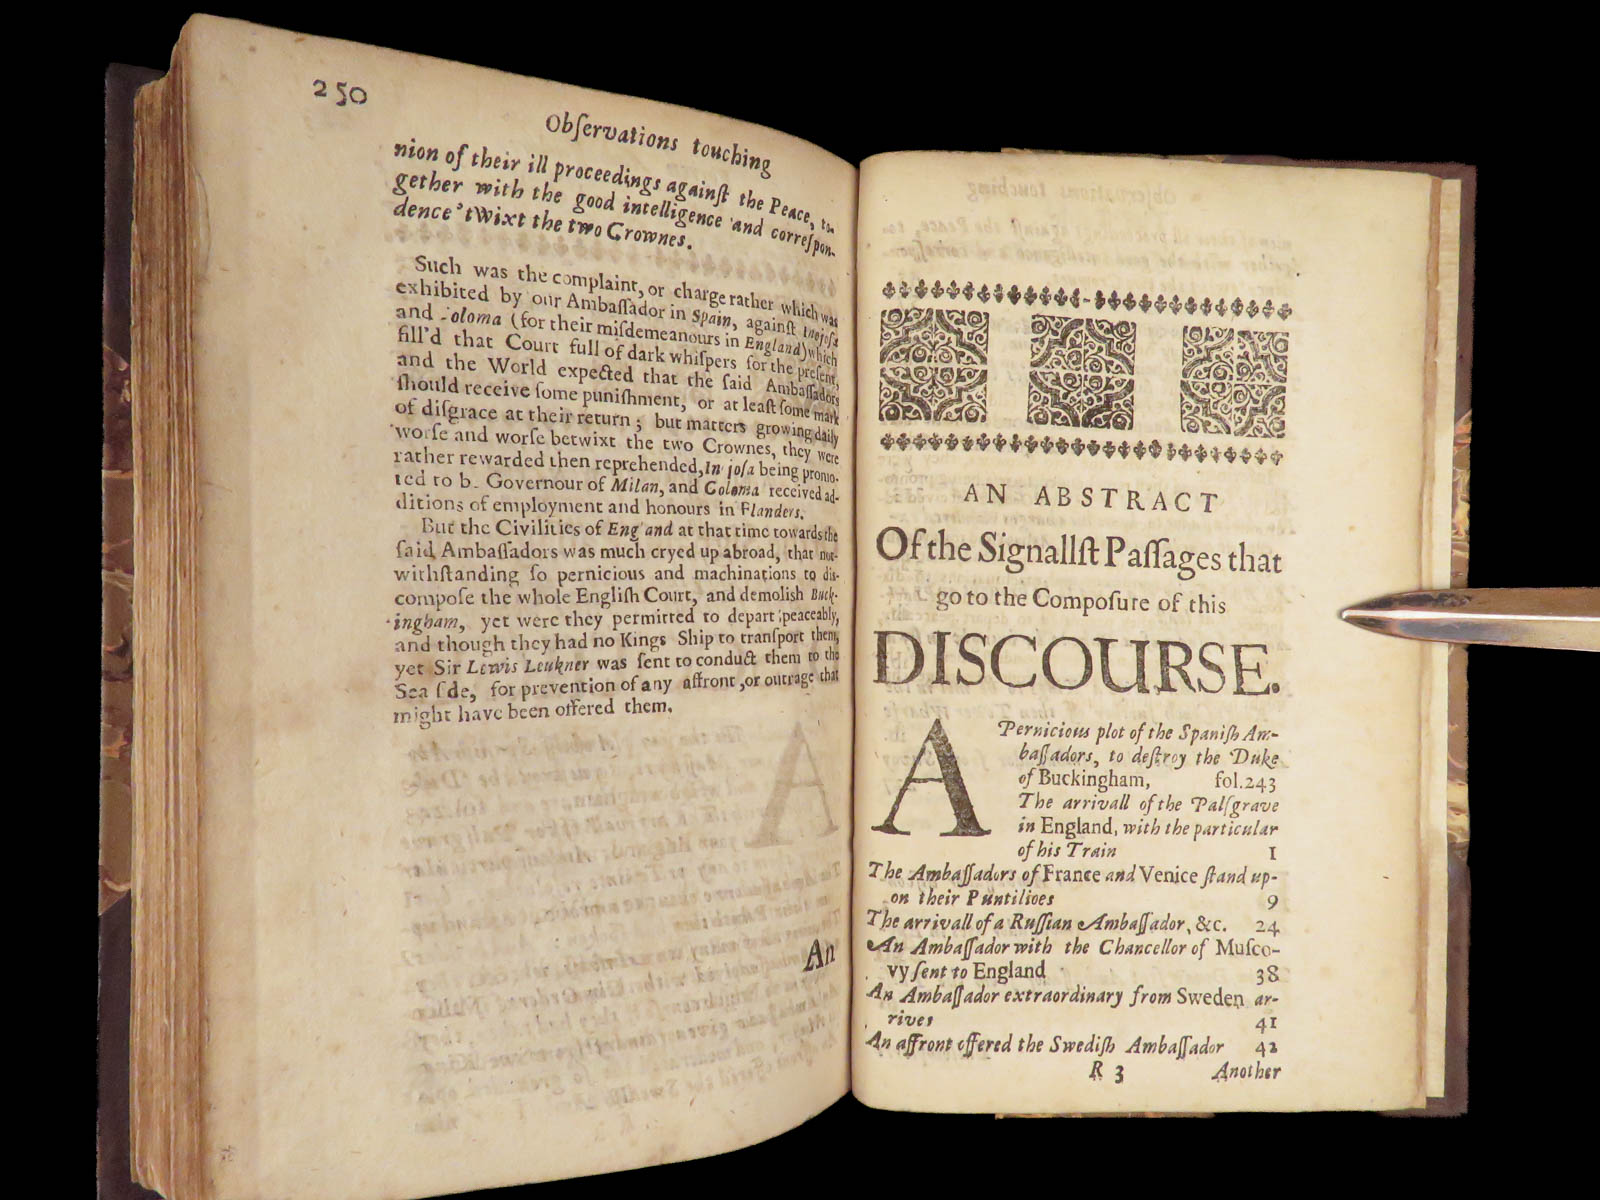 250
Obſervations touching
nion of their ill proceedings againſt the Peace, to-
gether with the good intelligence and correſpon-
dence 'twixt the two Crownes.
Such was the complaint, or charge rather which was
exhibited by our Ambaſſador in Spain, againſt Inojoſa
and oloma (for their miſdemeanours in England) which
fill'd that Court full of dark whiſpers for the preſent,
and the World expected that the ſaid Ambaſſadors
ſhould receive ſome puniſhment, or at leaſt ſome mark
of diſgrace at their return; but matters growing daily
worſe and worſe betwixt the two Crownes, they were
rather rewarded then reprehended, In joſa being promo-
ted to b. Governour of Milan, and Coloma received ad-
ditions of employment and honours in Flanders.
But the Civilities of Eng and at that time towards the
ſaid Ambaſſadors was much cryed up abroad, that not-
withſtanding ſo pernicious and machinations to diſ-
compoſe the whole Engliſh Court, and demoliſh Buck-
ingham, yet were they permitted to depart peaceably,
and though they had no Kings Ship to tranſport them,
yet Sir Lewis Leukner was ſent to conduct them to the
Sea ſide, for prevention of any affront, or outrage that
might have been offered them.
An
AN ABSTRACT
Of the Signallſt Paſſages that
go to the Compoſure of this
DISCOURSE.
A Pernicious plot of the Spaniſh Am-
baſſadors, to deſtroy the Duke
of Buckingham, fol.243
The arrivall of the Palſgrave
in England, with the particular
of his Train 1
The Ambaſſadors of France and Venice ſtand up-
on their Puntilioes 9
The arrivall of a Ruſſian Ambaſſador, &c. 24
An Ambaſſador with the Chancellor of Muſco-
vy ſent to England 38
An Ambaſſador extraordinary from Sweden ar-
rives 41
An affront offered the Swediſh Ambaſſador 42
R 3 Another